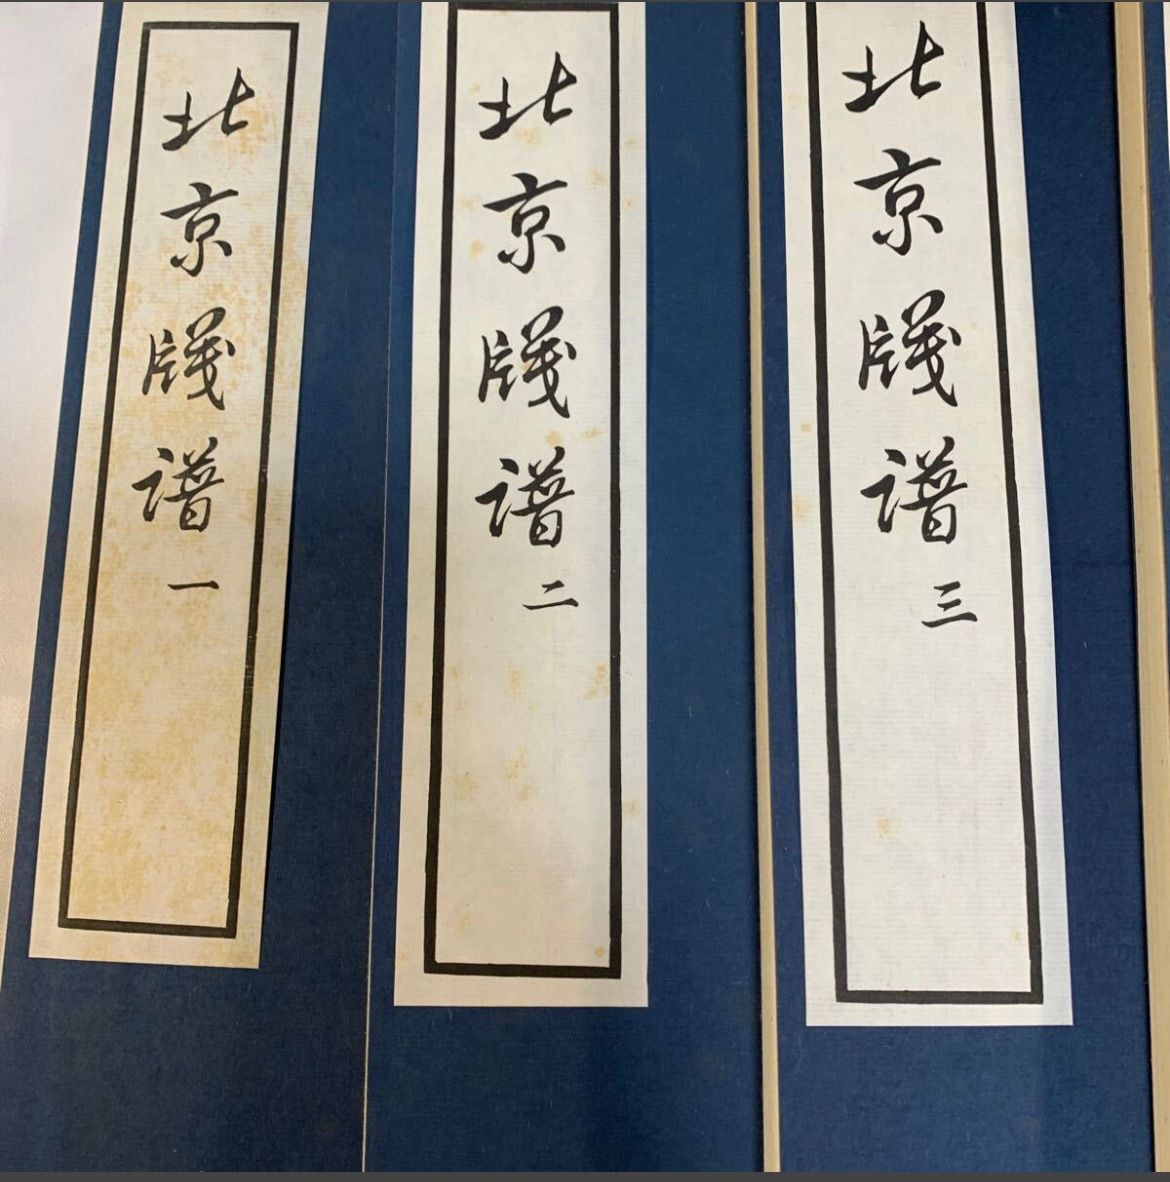 北京牋谱一
北京牋谱二
北京牋谱三